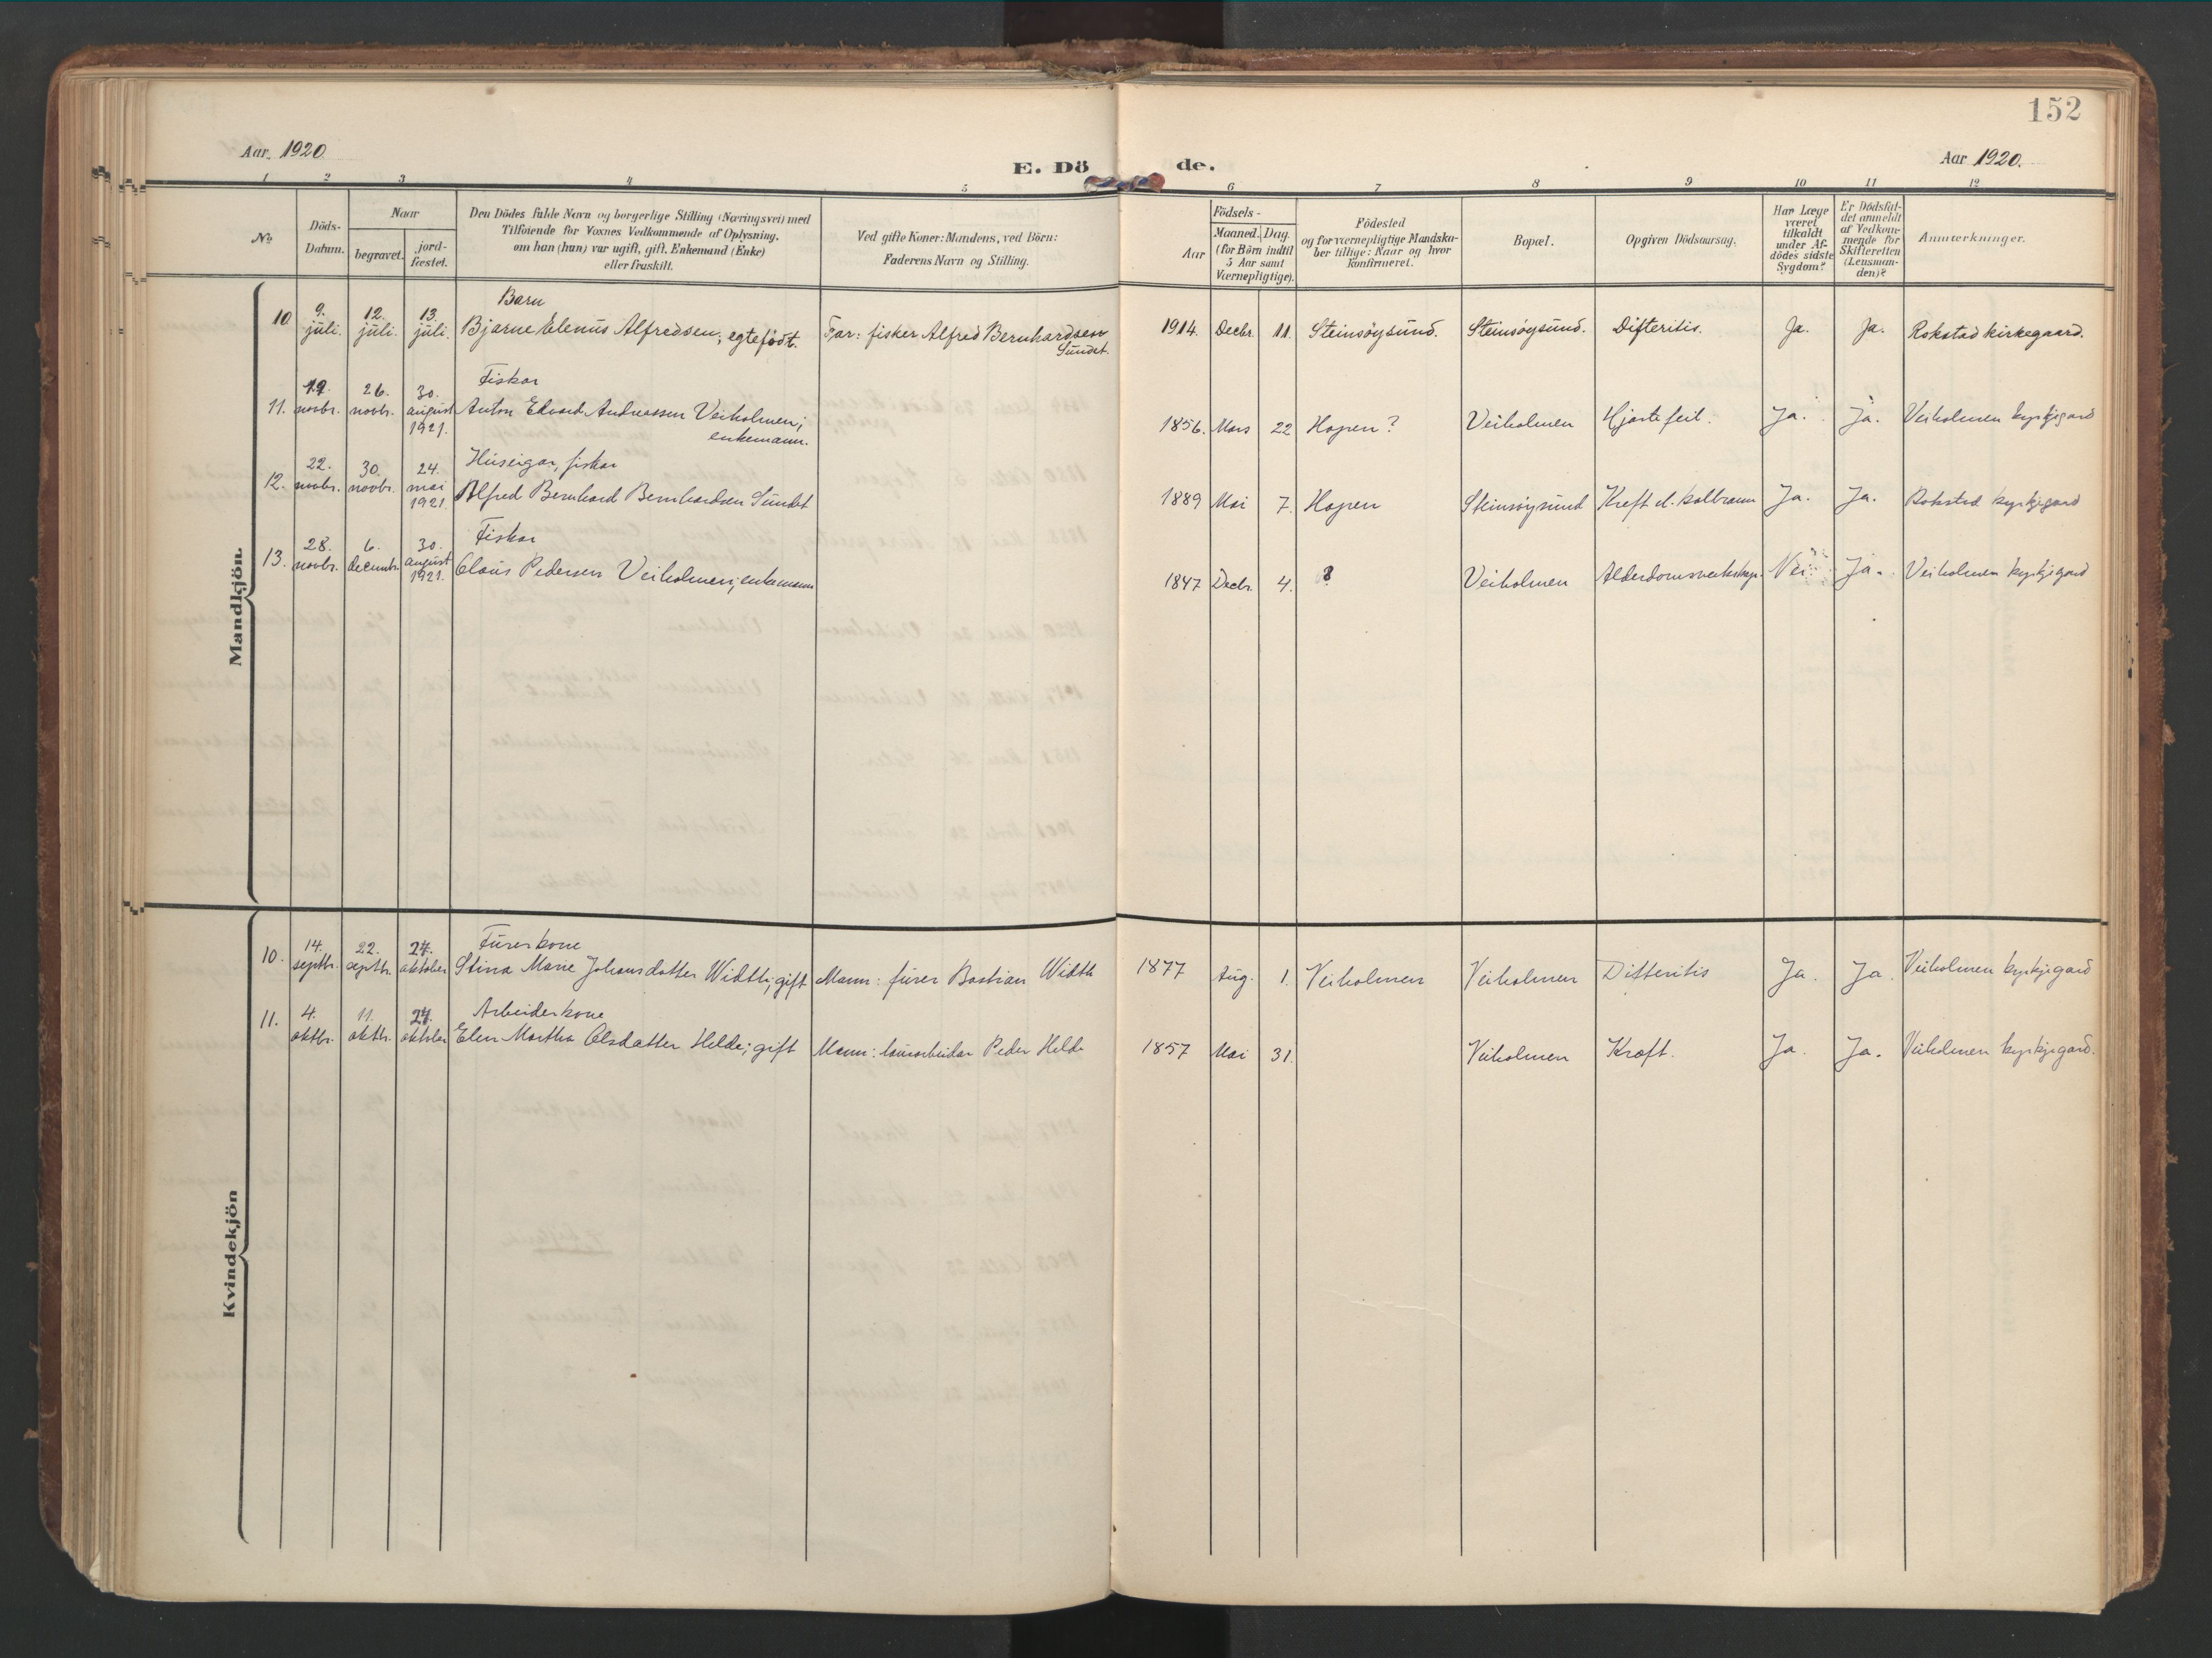 152
Aar 1920.
E. Döde.
Aar 1920.
1 2 3 4 5 6 7 8 9 10 11 12
No.
Döds-
Datum.
Naar
begravet.
jord-
fæstet.
Den Dödes fulde Navn og borgerlige Stilling (Næringsvei) med
Tilföiende for Voxnes Vedkommende af Oplysning,
om han (hun) var ugift, gift, Enkemand (Enke)
eller fraskilt.
Ved gifte Koner: Mandens, ved Börn:
Faderens Navn og Stilling.
Födsels-
Aar
Maaned.
Dag.
(for Börn indtil
5 Aar samt
Værnepligtige).
Födested
og for værnepligtige Mandska-
ber tillige: Naar og hvor
konfirmeret.
Bopæl.
Opgiven Dödsaarsag.
Har Læge
været
tilkaldt
under Af-
dödes sidste
Sygdom?
Er Dödsfal-
det anmeldt
af Vedkom-
mende for
Skifteretten
(Lensman-
den)?
Anmærkninger.
Mandkjön.
Barn
10. 9. juli. 12. juli. 13. juli. Bjarne Elenus Alfredsen, egtefødt. Far: fisker Alfred Bernhardsen Sundet. 1914. Decbr. 11. Steinsöysund. Steinsöysund. Difteritis. Ja. Ja. Rokstad kirkegaard.
Fiskar
11. 19. novbr. 26. novbr. 30. august 1921. Anton Edvard Andreassen Veiholmen; enkemann. 1856. Mars 22 Hopen? Veiholmen Hjartefeil. Ja. Ja. Veiholmen kyrkjegard
Huseigar, fiskar
12. 22. novbr. 30. novbr. 24. mai 1921. Alfred Bernhard Bernhardsen Sundet 1889 Mai 7. Hopen Steinsöysund Kreft el. kolbrann Ja. Ja. Rokstad kyrkjegard
Fiskar
13. 28. novbr. 6. decembr. 30. august 1921. Claus Pedersen Veiholmen; enkemann 1847 Decbr. 4. ? Veiholmen Nei. Ja. Veiholmen kyrkjegard
Kvindekjön
Furerkone
10. 14. septbr. 22. septbr. 24. oktober Stina Marie Johansdatter Width; gift Mann: furer Bastian Width 1877 Aug. 1. Veiholmen Veiholmen Difteritis Ja. Ja. Veiholmen kyrkjegard
Arbeiderkone
11. 4. oktbr. 11. oktbr. 24. oktober Elen Martha Olsdatter Helde; gift Mann: Peder Helde 1857 Mai 31. Veiholmen Kræft. Ja. Ja. Veiholmen kyrkjegard.